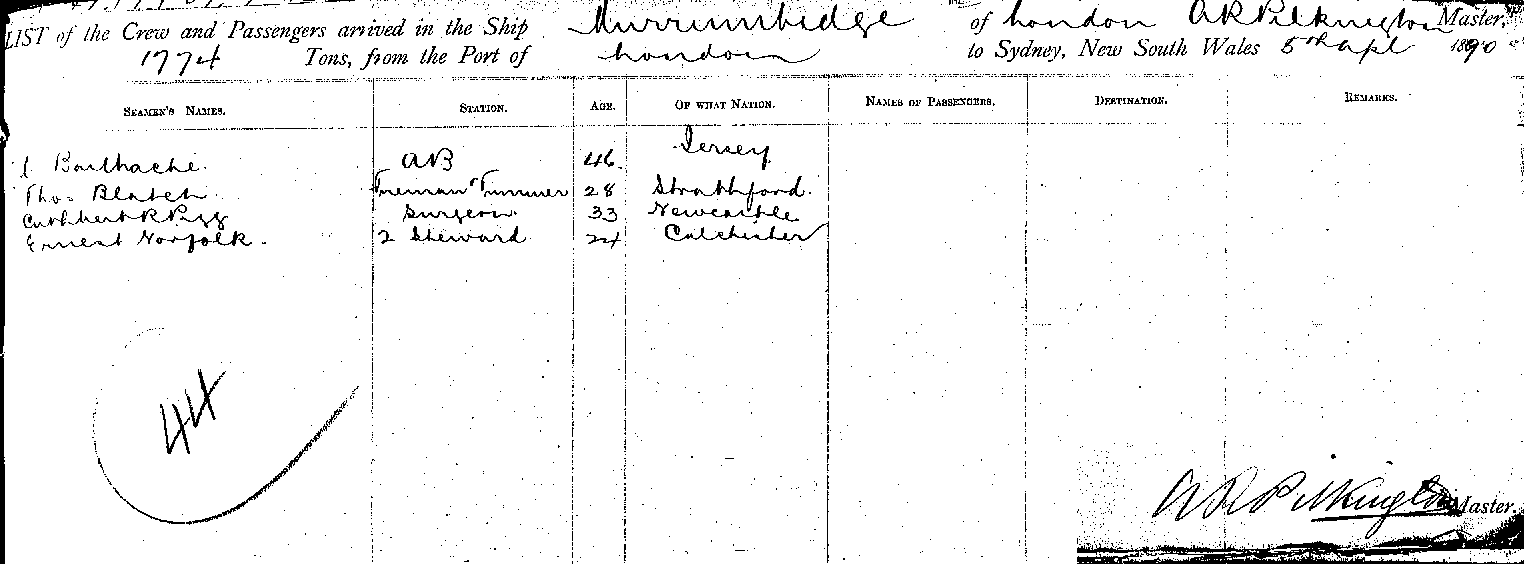 LIST of the Crew and Passengers arrived in the Ship Murrumbidge of London A R Pilkington Master,
1774 Tons, from the Port of London to Sydney, New South Wales 5th Apl 1890
SEAMEN'S NAMES. STATION. AGE. OF WHAT NATION. NAMES OF PASSENGERS. DESTINATION. REMARKS.
Bailhache. AB 46. Jersey
Thos Blatch Fireman & Trimmer 28 Strathford.
Cuthbert R Pigg Surgeon. 33 Newcastle
Ernest Norfolk. 2 Steward 24 Colchester
44
A R Pilkington Master.